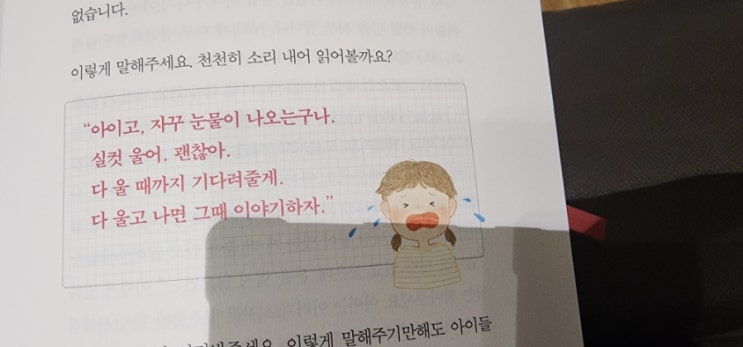 없습니다.
이렇게 말해주세요. 천천히 소리 내어 읽어볼까요?
“아이고, 자꾸 눈물이 나오는구나.
실컷 울어. 괜찮아.
다 울 때까지 기다려줄게.
다 울고 나면 그때 이야기하자.”
이렇게 말해주기만해도 아이들